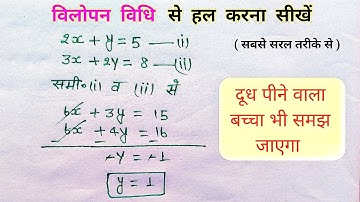 विलोपन विधि से हल करना सीखें
( सबसे सरल तरीके से )
2x + y = 5 — (i)
3x + 2y = 8 — (ii)
समी० (i) व (ii) से
6x + 3y = 15
6x + 4y = 16
-y = -1
y = 1
दूध पीने वाला
बच्चा भी समझ
जाएगा